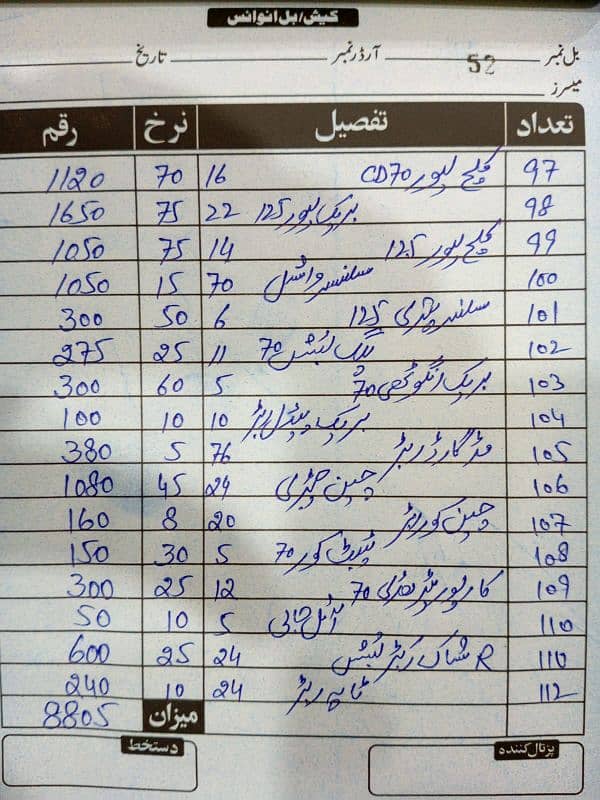 کیش/بل انوائس
بل نمبر 52 آرڈر نمبر تاریخ
میسرز
تعداد تفصیل نرخ رقم
97 کلچ لیور CD70 16 70 1120
98 بریک لیور 125 22 75 1650
99 کلچ لیور 125 14 75 1050
100 سلنسر واشل 70 15 1050
101 سلنسر پتری 125 6 50 300
102 بگ لبش 70 11 25 275
103 بریک انگوٹھی 70 5 60 300
104 بریک پیڈل ربڑ 10 10 100
105 مڈ گارڈ ربڑ 76 5 380
106 چین چڑی 24 45 1080
107 چین کور ربڑ 20 8 160
108 ٹیپٹ کور 70 5 30 150
109 کارپوریٹر 70 12 25 300
110 آئل جالی 5 10 50
110 R شاک ربڑ بش 24 25 600
112 ٹاپہ ربڑ 24 10 240
میزان 8805
پڑتال کنندہ دستخط